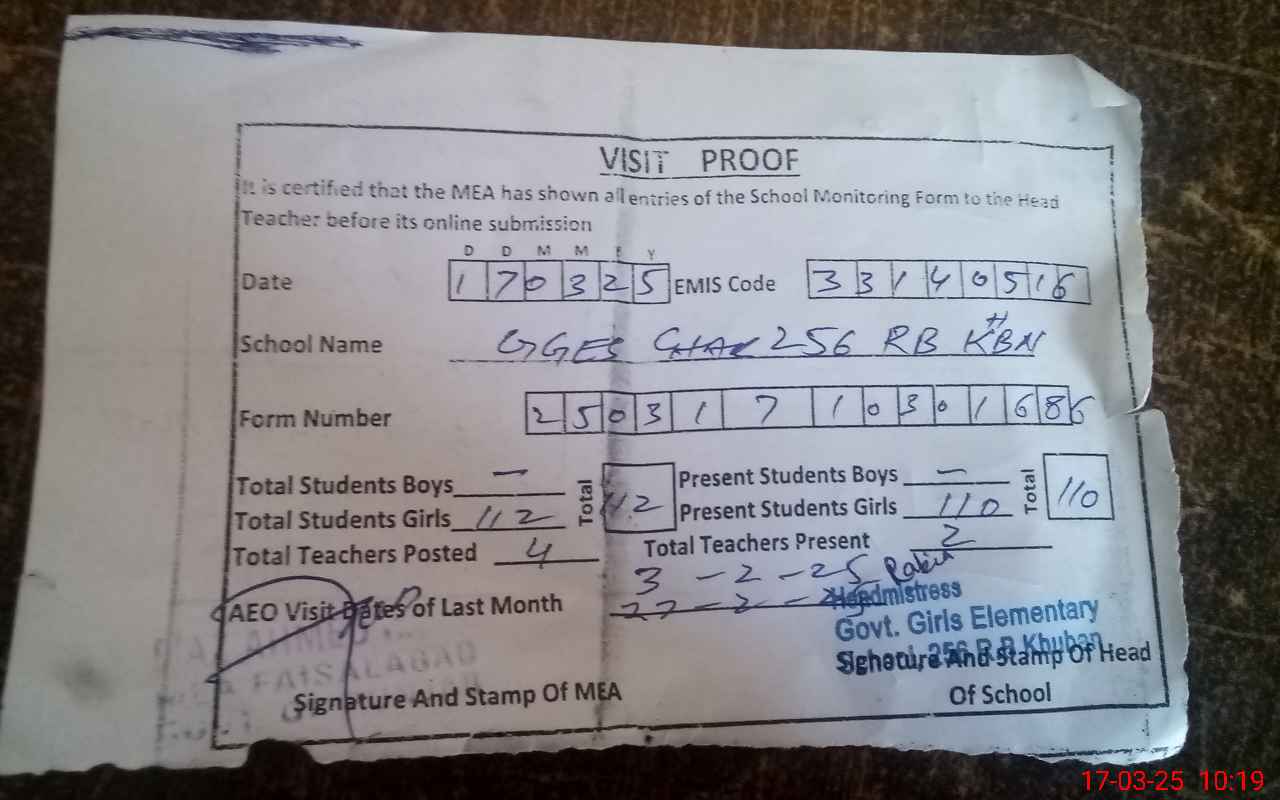 VISIT PROOF
It is certified that the MEA has shown all entries of the School Monitoring Form to the Head
Teacher before its online submission
D D M M Y Y
Date 170325 EMIS Code 33140516
School Name GGES CHAK 256 RB KBN
Form Number 25031710301686
Total Students Boys — Total 112 Present Students Boys — Total 110
Total Students Girls 112 Present Students Girls 110
Total Teachers Posted 4 Total Teachers Present 2
3-2-25
AEO Visit Dates of Last Month
Headmistress
Govt. Girls Elementary
School 256 R.B Khuban
FAISALABAD
Signature And Stamp Of Head
Signature And Stamp Of MEA Of School
17-03-25 10:19